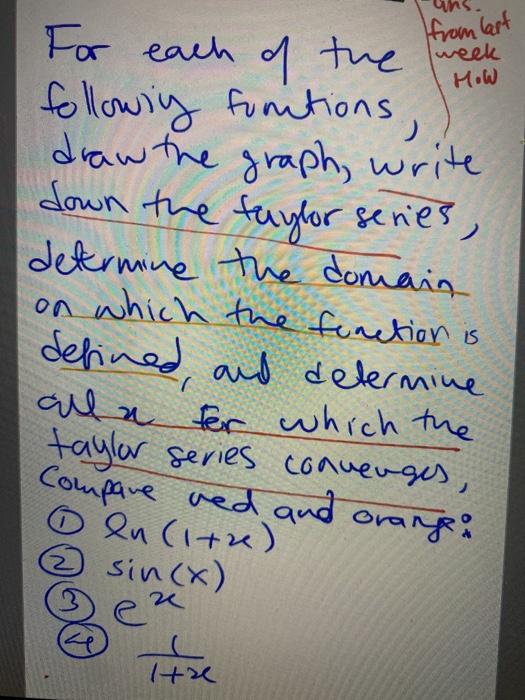 ans.
from last
week
H.W
For each of the
following funtions,
draw the graph, write
down the taylor series,
determine the domain
on which the function is
defined, and determine
all x for which the
taylor series converges,
Compare red and orange:
① ln(1+x)
② sin(x)
③ e^x
④ 1/1+x